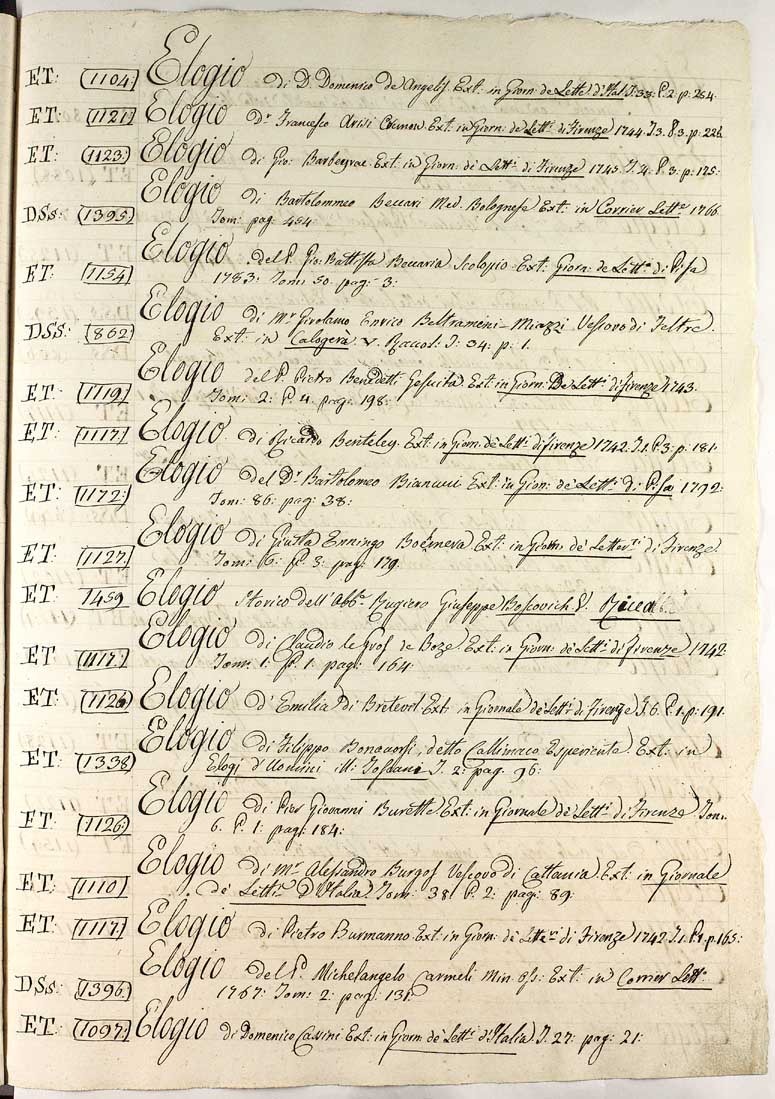 ET: (1104) Elogio di D. Domenico de Angelis. Ext: in Giorn: de Lett: d'Ital. T. 33: P. 2: p: 264.
ET: (1121) Elogio Dr. Francesco Arisi Cremon. Ext: in Giorn: de' Letti: di Firenze 1744. T. 3. P. 3. p: 226.
ET: (1123) Elogio di Gio: Barbeyrac. Ext: in Giorn: de' Letti: di Firenze 1745. T. 4. P. 3: p: 175:
Elogio di Bartolommeo Beccari Med. Bolognese Ext: in Corrier Lette. 1766.
DSs: (1395) Tom: pag: 454
Elogio del P. Gio: Battista Beccaria Scolopio. Ext: Giorn: de Letti: di Pisa
ET: (1154) 1783: Tom: 50. pag: 3:
Elogio di Mr. Girolamo Enrico Beltrameni-Miazzi Vescovo di Feltre.
DSS: (862) Ext: in Calogerà v. Raccol: T. 34: p: 1.
Elogio del P. Pietro Benedetti Gesuita. Ext: in Giorn: De Letti: di Firenze 1743.
ET: (1119) Tom: 2: P. 4. pag: 198:
ET: (1117) Elogio di Ricardo Benteley. Ext: in Giorn: de Letti: di Firenze 1742. T. 1. P. 3: p: 181.
Elogio del Dr. Bartolomeo Bianucci Ext: in Giorn: de' Letti: di Pisa 1792:
ET: (1172) Tom: 86: pag: 38:
Elogio di Giusta Enningo Boëmera. Ext: in Giorn: de' Letter: di Firenze.
ET: (1127) Tom: 6: P. 3: pag: 179.
ET: 1459 Elogio Storico dell' Abb. Rugiero Giuseppe Boscovich. V. Ricca
Elogio di Claudio le Gros de Boze. Ext: in Giorn: de' Letti: di Firenze 1742
ET (1117) Tom: 1: P. 1. pag: 164:
ET: (1126) Elogio d' Emilia di Bretevil. Ext in Giornale de' Letti: di Firenze T. 6. P. 1. p: 191.
Elogio di Filippo Bonaccorsi, detto Callimaco Esperiente. Ext: in
ET: (1338) Elogi d' Uomini ill: Toscani T. 2: pag: 96:
Elogio di Pier Giovanni Burette. Ext: in Giornale de' Letti: di Firenze. Tom:
ET: (1126) 6. P. 1: pag: 184:
Elogio di Mr. Alessandro Burgos Vescovo di Cattania. Ext: in Giornale
ET: (1110) de' Letti: d'Italia. Tom: 38: P. 2: pag: 89:
ET: (1117) Elogio di Pietro Burmanno Ext: in Giorn: de' Lette: di Firenze 1742 T. 1. P. 1. p: 165:
Elogio del P. Michelangelo Carmeli Min. Oss: Ext: in Corrier Lett:
DSs: (1396) 1767: Tom: 2: pag: 131.
ET: (1097) Elogio di Domenico Cassini Ext: in Giorn: de' Letti: d'Italia T. 27: pag: 21: